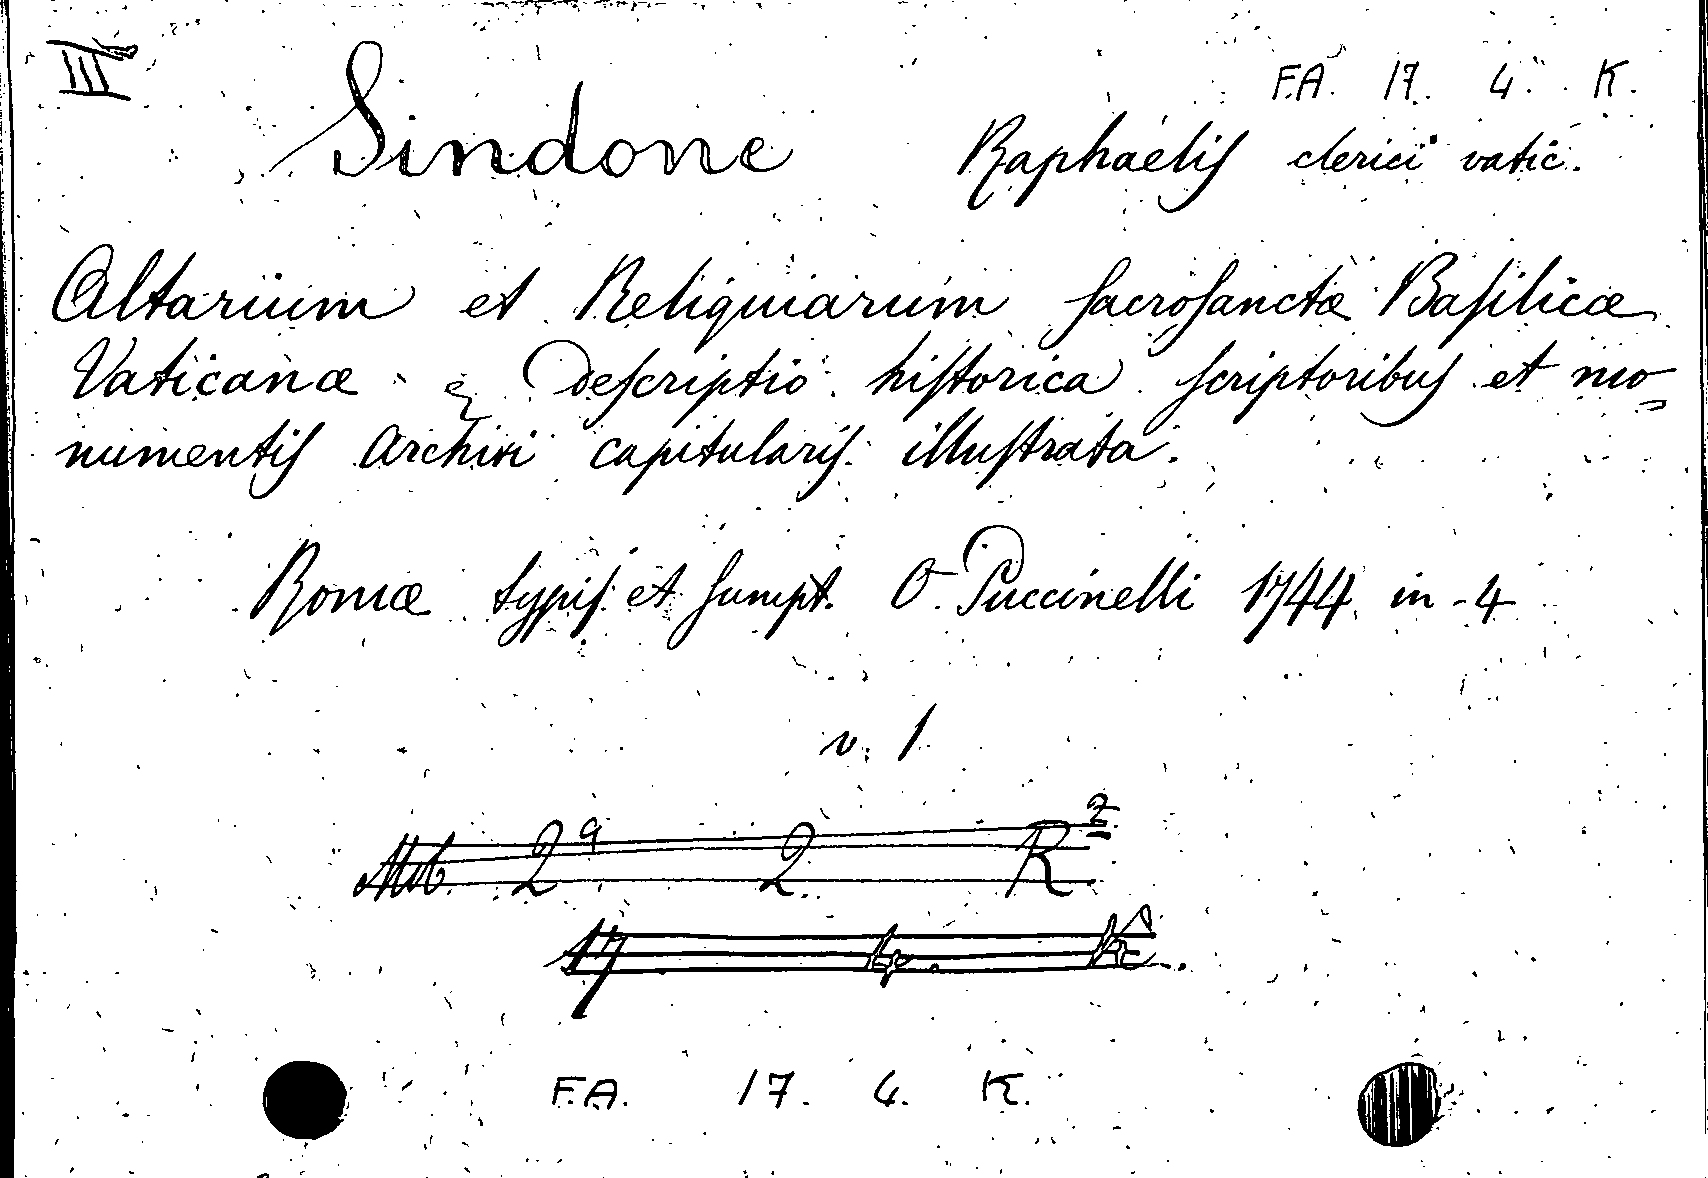 III
F.A. 17. 4. K.
Sindone Raphaelis clerici vatic.
Altarium et Reliquiarum sacrosanctæ Basilicæ
Vaticanæ Descriptio historica scriptoribus et mo
numentis Archivi capitularis illustrata.
Romæ typis et sumpt. O. Puccinelli 1744 in-4
v. 1
Mb. 2a 2 R2
17 4. K.
F.A. 17. 4. K.